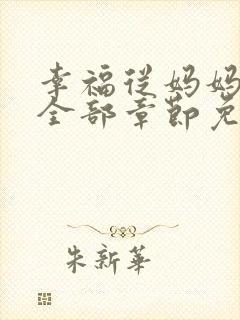 幸福从妈妈
全部章节免
朱新华